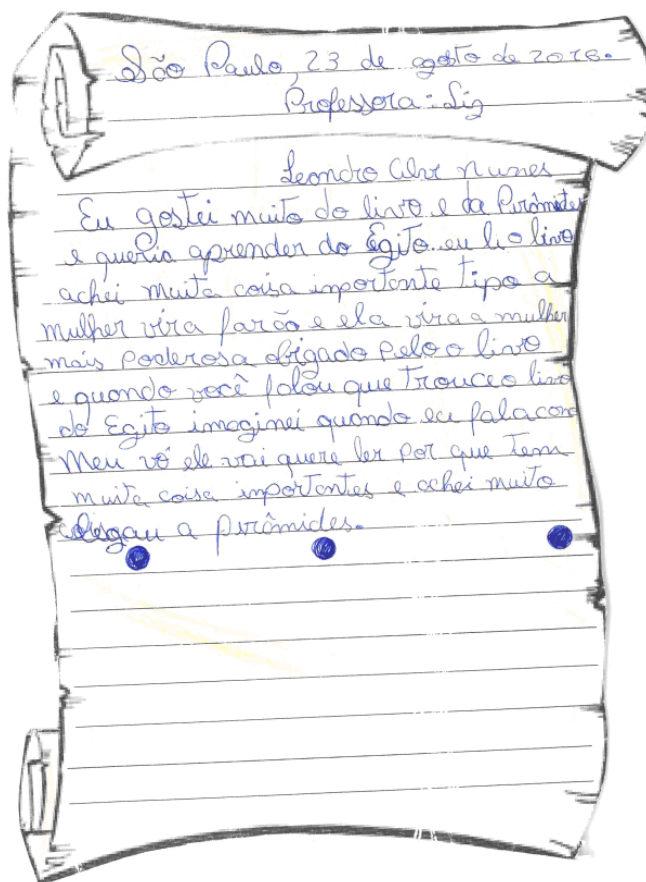 São Paulo, 23 de agosto de 2016.
Professora: Lig
Leandro Alve Nunes
Eu gostei muito do livo e da Pirâmides
e queria aprender do Egito eu li o livo
achei muita coisa inportante tipo a
mulher vira farão e ela vira a mulher
mais poderosa obigado pelo o livo
e quando você falou que trouce o livo
do Egito imaginei quando eu fala com
Meu vô ele vai quere ler por que tem
muita coisa inportantes e achei muito
legau a pirâmides.